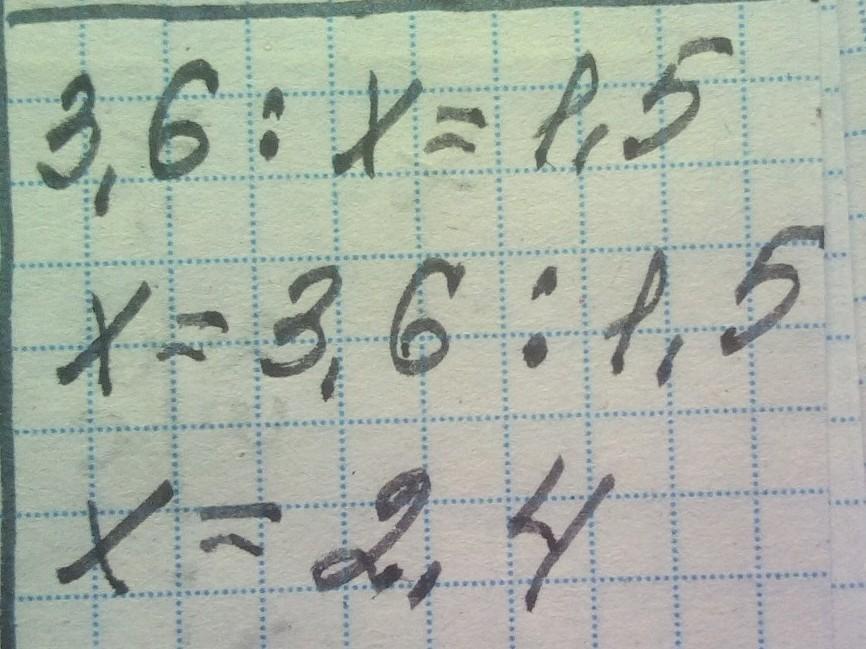 3,6 : x = 1,5
x = 3,6 : 1,5
x = 2,4